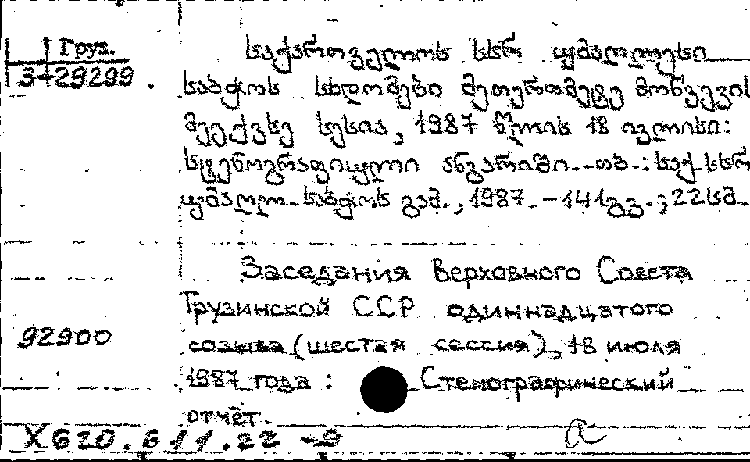 Груз.
3-29299.
საქართველოს სსრ უმაღლესი
საბჭოს სხდომები მეთერთმეტე მოწვევის
მეექვსე სესია, 1987 წლის 18 ივლისი:
სტენოგრაფიული ანგარიში.-თბ.: საქ.სსრ
უმაღლ. საბჭოს გამ., 1987.-141გვ.; 22სმ
Заседания Верховного Совета
Грузинской ССР одиннадцатого
92900
созыва (шестая сессия), 18 июля
1987 года: Стенографический
отчёт.
Х620.611.22-9
а